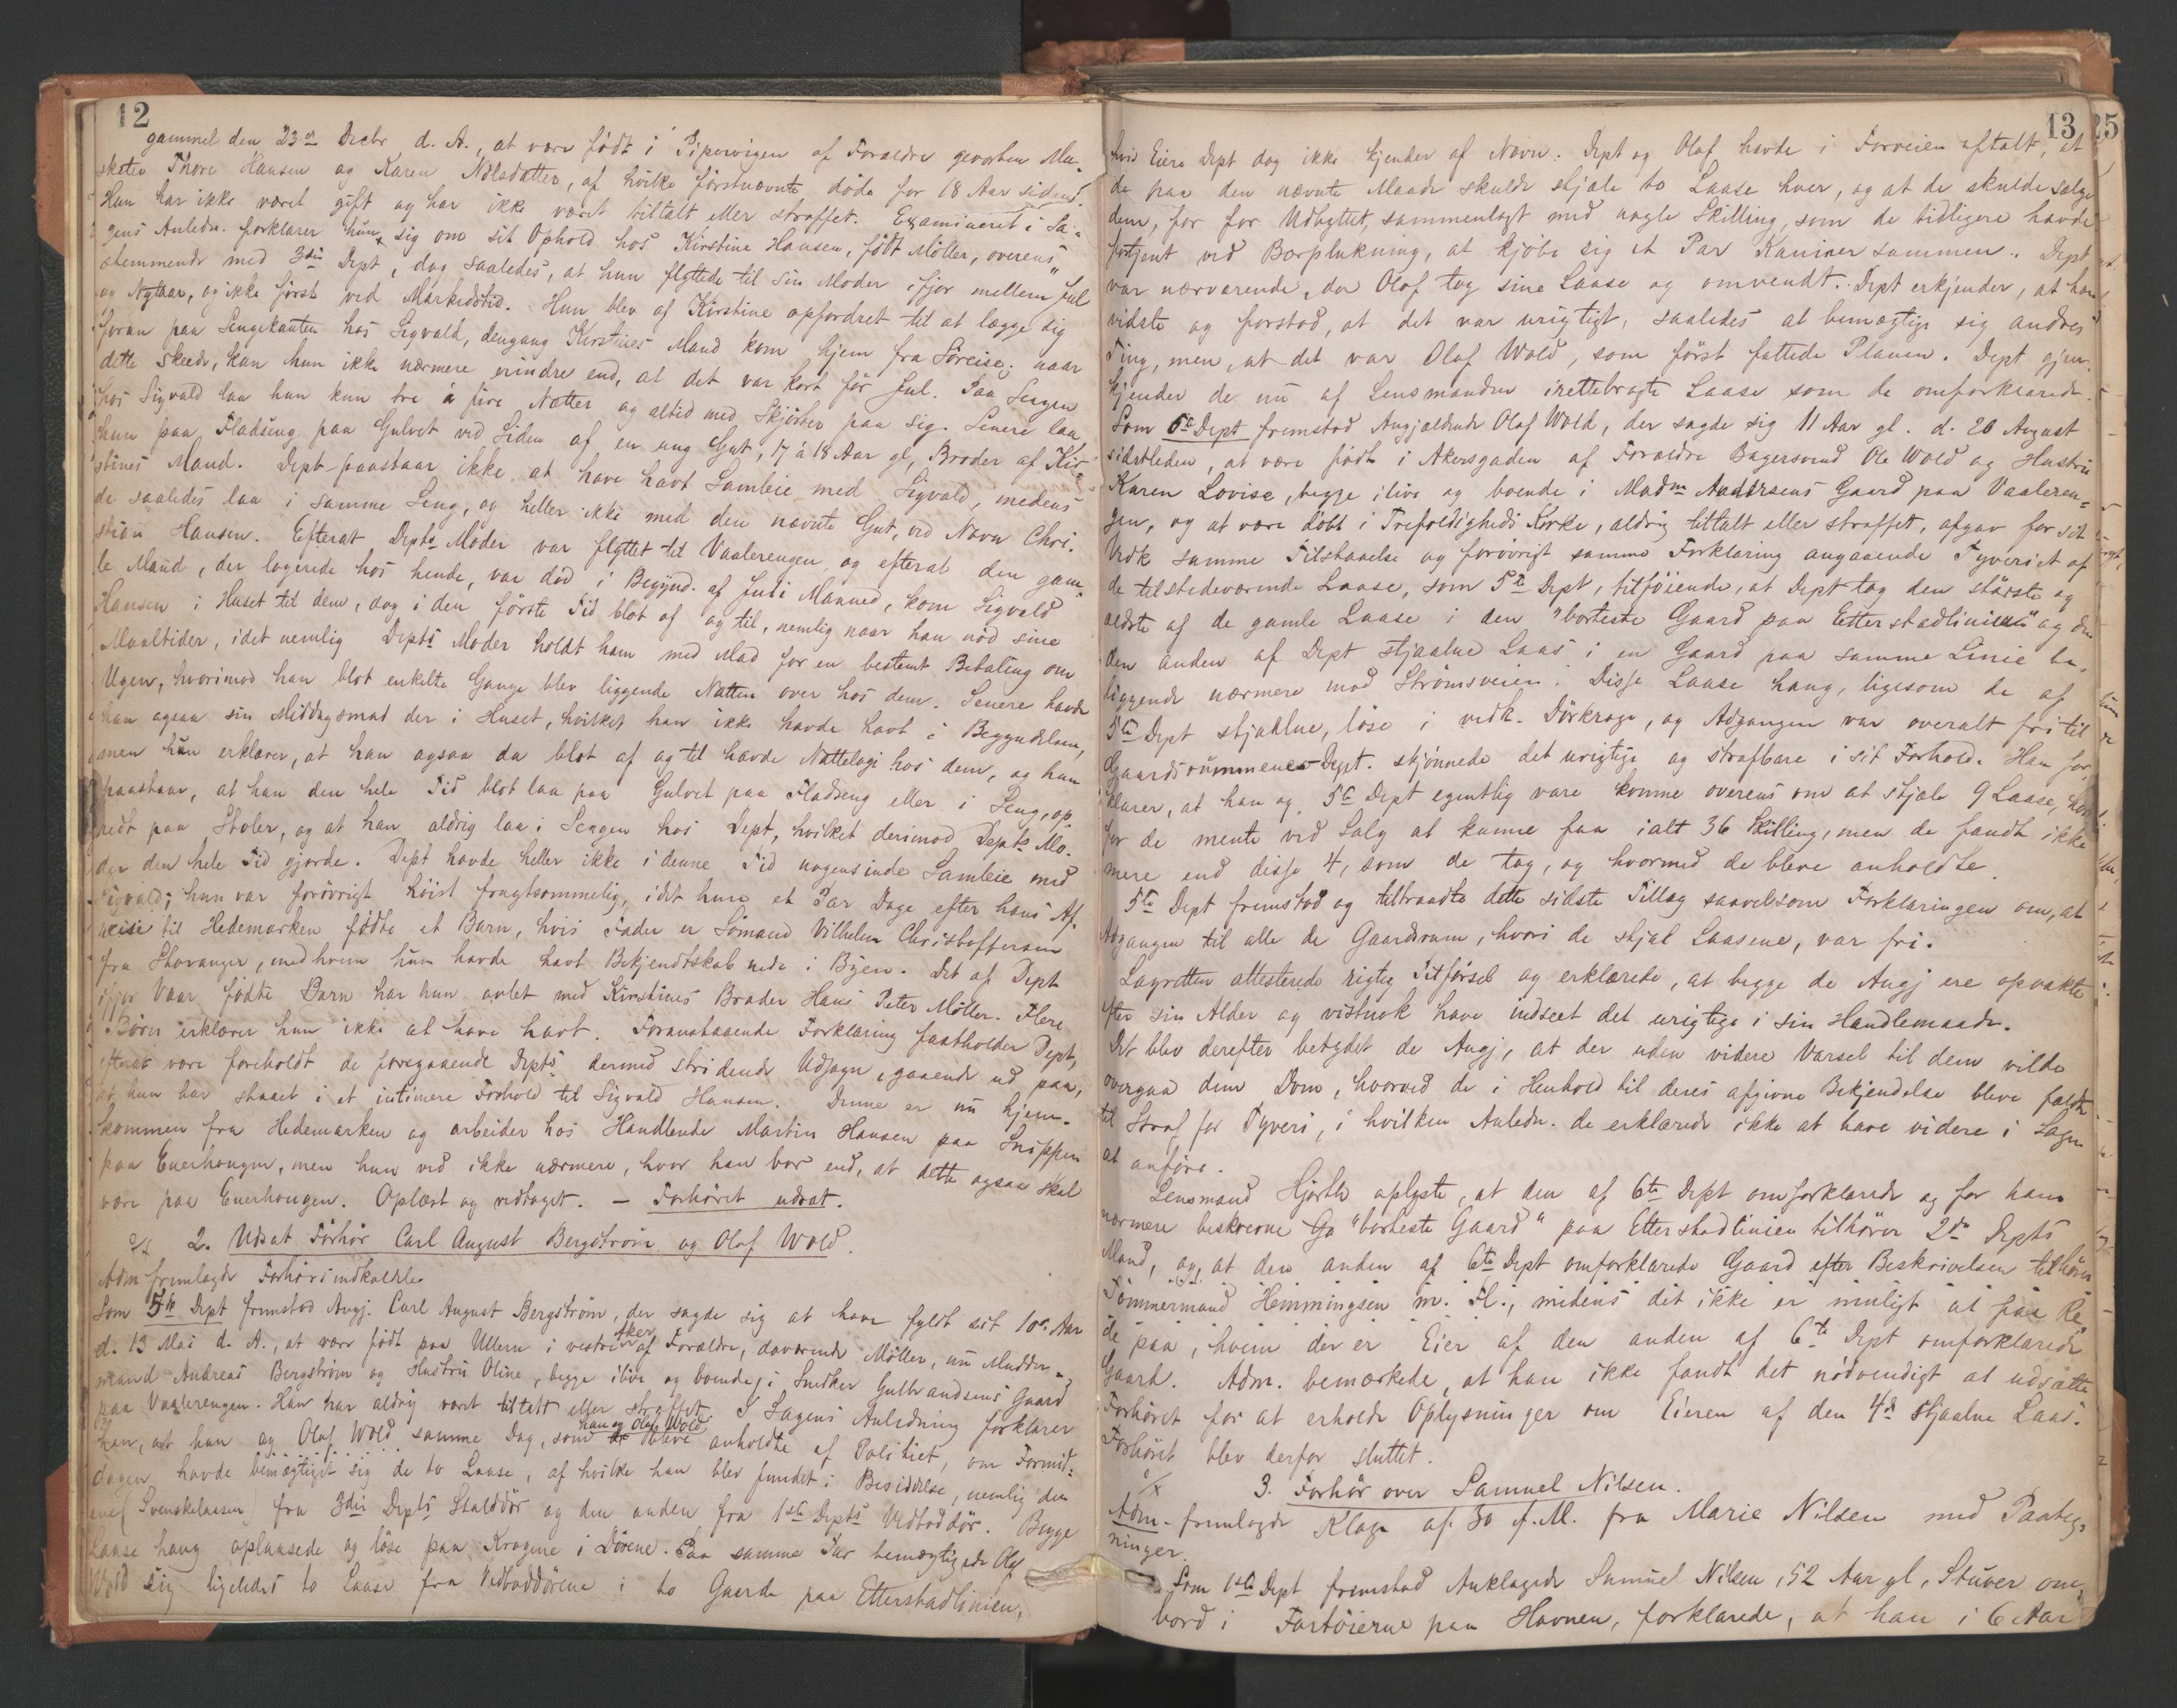 12
gammel den 23de Decbr d. A., at være født i Pipervigen af Forældre gevorben Mu-
sketer Thore Hansen og Karen Nilsdatter, af hvilke førstnævnte døde for 18 Aar siden.
Hun har ikke været gift og har ikke været tiltalt eller straffet. Examineret i Sa-
gens Anledn. forklarer hun sig om sit Ophold hos Kirstine Hansen, født Møller, overens
stemmende med 3die Dept, dog saaledes, at hun flyttede til sin Moder ifjor mellem Jul
og Nytaar, og ikke først ved Markedstid. Hun blev af Kirstine opfordret til at lægge sig
foran paa Sengekanten hos Sigvald, dengang Kirstines Mand kom hjem fra Søreise; naar
dette skede, kan hun ikke nærmere erindre end, at det var kort før Jul. Paa Sengen
hos Sigvald laa hun kun tre à fire Nætter og altid med Skjørter paa sig. Senere laa
hun paa Fladseng paa Gulvet ved Siden af en ung Gut, 17 à 18 Aar gl, Broder af Kir-
stines Mand. Dept paastaar ikke at have havt Samleie med Sigvald, medens
de saaledes laa i samme Seng, og heller ikke med den nævnte Gut, ved Navn Chri-
stian Hansen. Efterat Depts Moder var flyttet til Vaalerengen og efterat den gam-
le Mand, der logerede hos hende, var død i Begynd. af Juli Maaned, kom Sigvald
Hansen i Huset til dem, dog i den første Tid blot af og til, nemlig naar han nød sine
Maaltider, idet nemlig Depts Moder holdt ham med Mad for en bestemt Betaling om
Ugen, hvorimod han blot enkelte Gange blev liggende Natten over hos dem. Senere havde
han ogsaa sin Middagsmad der i Huset, hvilket han ikke havde havt i Begyndelsen,
men hun erklærer, at han ogsaa da blot af og til havde Natteleie hos dem, og hun
paastaar, at han den hele Tid blot laa paa Gulvet paa Fladseng eller i Seng, op
redt paa Stoler, og at han aldrig laa i Sengen hos Dept, hvilket derimod Depts Mo-
der den hele Tid gjorde. Dept havde heller ikke i denne Tid nogensinde Samleie med
Sigvald; hun var forøvrigt høist frugtsommelig, idet hun et Par Dage efter hans Af-
reise til Hedemarken fødte et Barn, hvis Fader er Sømand Vilhelm Christoffersen
fra Stavanger, med hvem hun havde havt Bekjendtskab nede i Byen. Det af Dept
ifjor Vaar fødte Barn har hun avlet med Kirstines Broder Hans Peter Møller. Flere
Børn erklærer hun ikke at have havt. Foranstaaende Forklaring fastholder Dept,
efterat være foreholdt de foregaaende Depts dermed stridende Udsagn, gaaende ud paa,
at hun har staaet i et intimere Forhold til Sigvald Hansen. Denne er nu hjem-
kommen fra Hedemarken og arbeider hos Handlende Martin Hansen paa Snippen
paa Enerhougen, men hun ved ikke nærmere, hvor han bor end, at dette ogsaa skal
være paa Enerhougen. Oplæst og vedtaget. – Forhøret udsat.
2. Udsat Forhør Carl August Bergstrøm og Olaf Wold.
Adm fremlagde Forhørsindkaldelse
Som 5te Dept fremstod Angj. Carl August Bergstrøm, der sagde sig at have fyldt sit 10de Aar
d. 13 Mai d. A., at være født paa Ullern i vestre Aker af Forældre, daværende Møller, nu Mudder-
mand Andreas Bergstrøm og Hustru Oline, begge ilive og boende i Snedker Gulbrandsens Gaard
paa Vaalerengen. Han har aldrig været tiltalt eller straffet. I Sagens Anledning forklarer
han, at han og Olaf Wold samme Dag, som han og Olaf Wold bleve anholdte af Politiet, om Formid-
dagen havde bemægtiget sig de to Laase, af hvilke han blev fundet i Besiddelse, nemlig den
ene (Svenskelaasen) fra 3die Depts Stalddør og den anden fra 1ste Depts Vedboddør. Begge
Laase hang oplaasede og løse paa Krogene i Dørene. Paa samme Tur bemægtigede Olaf
Wold sig ligeledes to Laase fra Vedboddørene i to Gaarde paa Etterstadlinien,
13
25
hvis Eiere Dept dog ikke kjender af Navn. Dept og Olaf havde i Forveien aftalt, at
de paa den nævnte Maade skulde stjæle to Laase hver, og at de skulde sælge
dem, for for Udbyttet, sammenlagt med nogle Skilling, som de tidligere havde
fortjent ved Bærplukning, at kjøbe sig et Par Kaniner sammen. Dept
var nærværende, da Olaf tog sine Laase og omvendt. Dept erkjender, at han
vidste og forstod, at det var urigtigt, saaledes at bemægtige sig andres
Ting, men, at det var Olaf Wold, som først fattede Planen. Dept gjen-
kjender de nu af Lensmanden irettebragte Laase som de omforklarede.
Som 6te Dept fremstod Angjældende Olaf Wold, der sagde sig 11 Aar gl. d. 26 August
sidstleden, at være født i Akersgaden af Forældre Bagersvend Ole Wold og Hustru
Karen Lovise, begge ilive og boende i Madm Andersens Gaard paa Vaaleren-
gen, og at være døbt i Trefoldigheds Kirke, aldrig tiltalt eller straffet, afgav for sit
Vedk samme Tilstaaelse og forøvrigt samme Forklaring angaaende Tyveriet af
de tilstedeværende Laase, som 5te Dept, tilføiende, at Dept tog den største og
ældste af de gamle Laase i den "borteste Gaard paa Etterstadlinien" og den
den anden af Dept stjaalne Laas i en Gaard paa samme Linie be-
liggende nærmere mod Strømsveien. Disse Laase hang, ligesom de af
5te Dept stjaalne, løse i vedk. Dørkroge, og Adgangen var overalt fri til
Gaardsrummene. Dept. skjønnede det urigtige og strafbare i sit Forhold. Han for-
klarer, at han og 5te Dept egentlig vare komne overens om at stjæle 9 Laase,
for de mente ved Salg at kunne faa ialt 36 Skilling, men de fandt ikke
mere end disse 4, som de tog, og hvormed de bleve anholdte.
5te Dept fremstod og tiltraadte dette sidste Tillæg saavelsom Forklaringen om, at
Adgangen til alle de Gaardsrum, hvori de stjal Laasene, var fri.
Lagretten attesterede rigtig Tilførsel og erklærede, at begge de Angj ere opvakte
efter sin Alder og vistnok have indseet det urigtige i sin Handlemaade.
Det blev derefter betydet de Angj, at der uden videre Varsel til dem vilde
overgaa dem Dom, hvorved de i Henhold til deres afgivne Bekjendelse bleve fældte
til Straf for Tyveri, i hvilken Anledn. de erklærede ikke at have videre i Sagen
at anføre.
Lensmand Hjorth oplyste, at den af 6te Dept omforklarede og for ham
nærmere beskrevne Ga "borteste Gaard" paa Etterstadlinien tilhører 2den Depts
Mand, og, at den anden af 6te Dept omforklarede Gaard efter Beskrivelsen tilhører
Tømmermand Hemmingsen m. Fl., midens det ikke er muligt at faa Re-
de paa, hvem der er Eier af den anden af 6te Dept omforklarede
Gaard. Adm. bemærkede, at han ikke fandt det nødvendigt at udsætte
Forhøret for at erholde Oplysninger om Eieren af den 4de stjaalne Laas.
Forhøret blev derfor sluttet.
3. Forhør over Samuel Nilsen.
Adm. fremlagde Klage af 30 f. M. fra Marie Nilsen med Paateg-
ninger.
Som 1ste Dept fremstod Anklagede Samuel Nilsen, 52 Aar gl, Stuver om-
bord i Fartøierne paa Havnen, forklarede, at han i 6 Aar